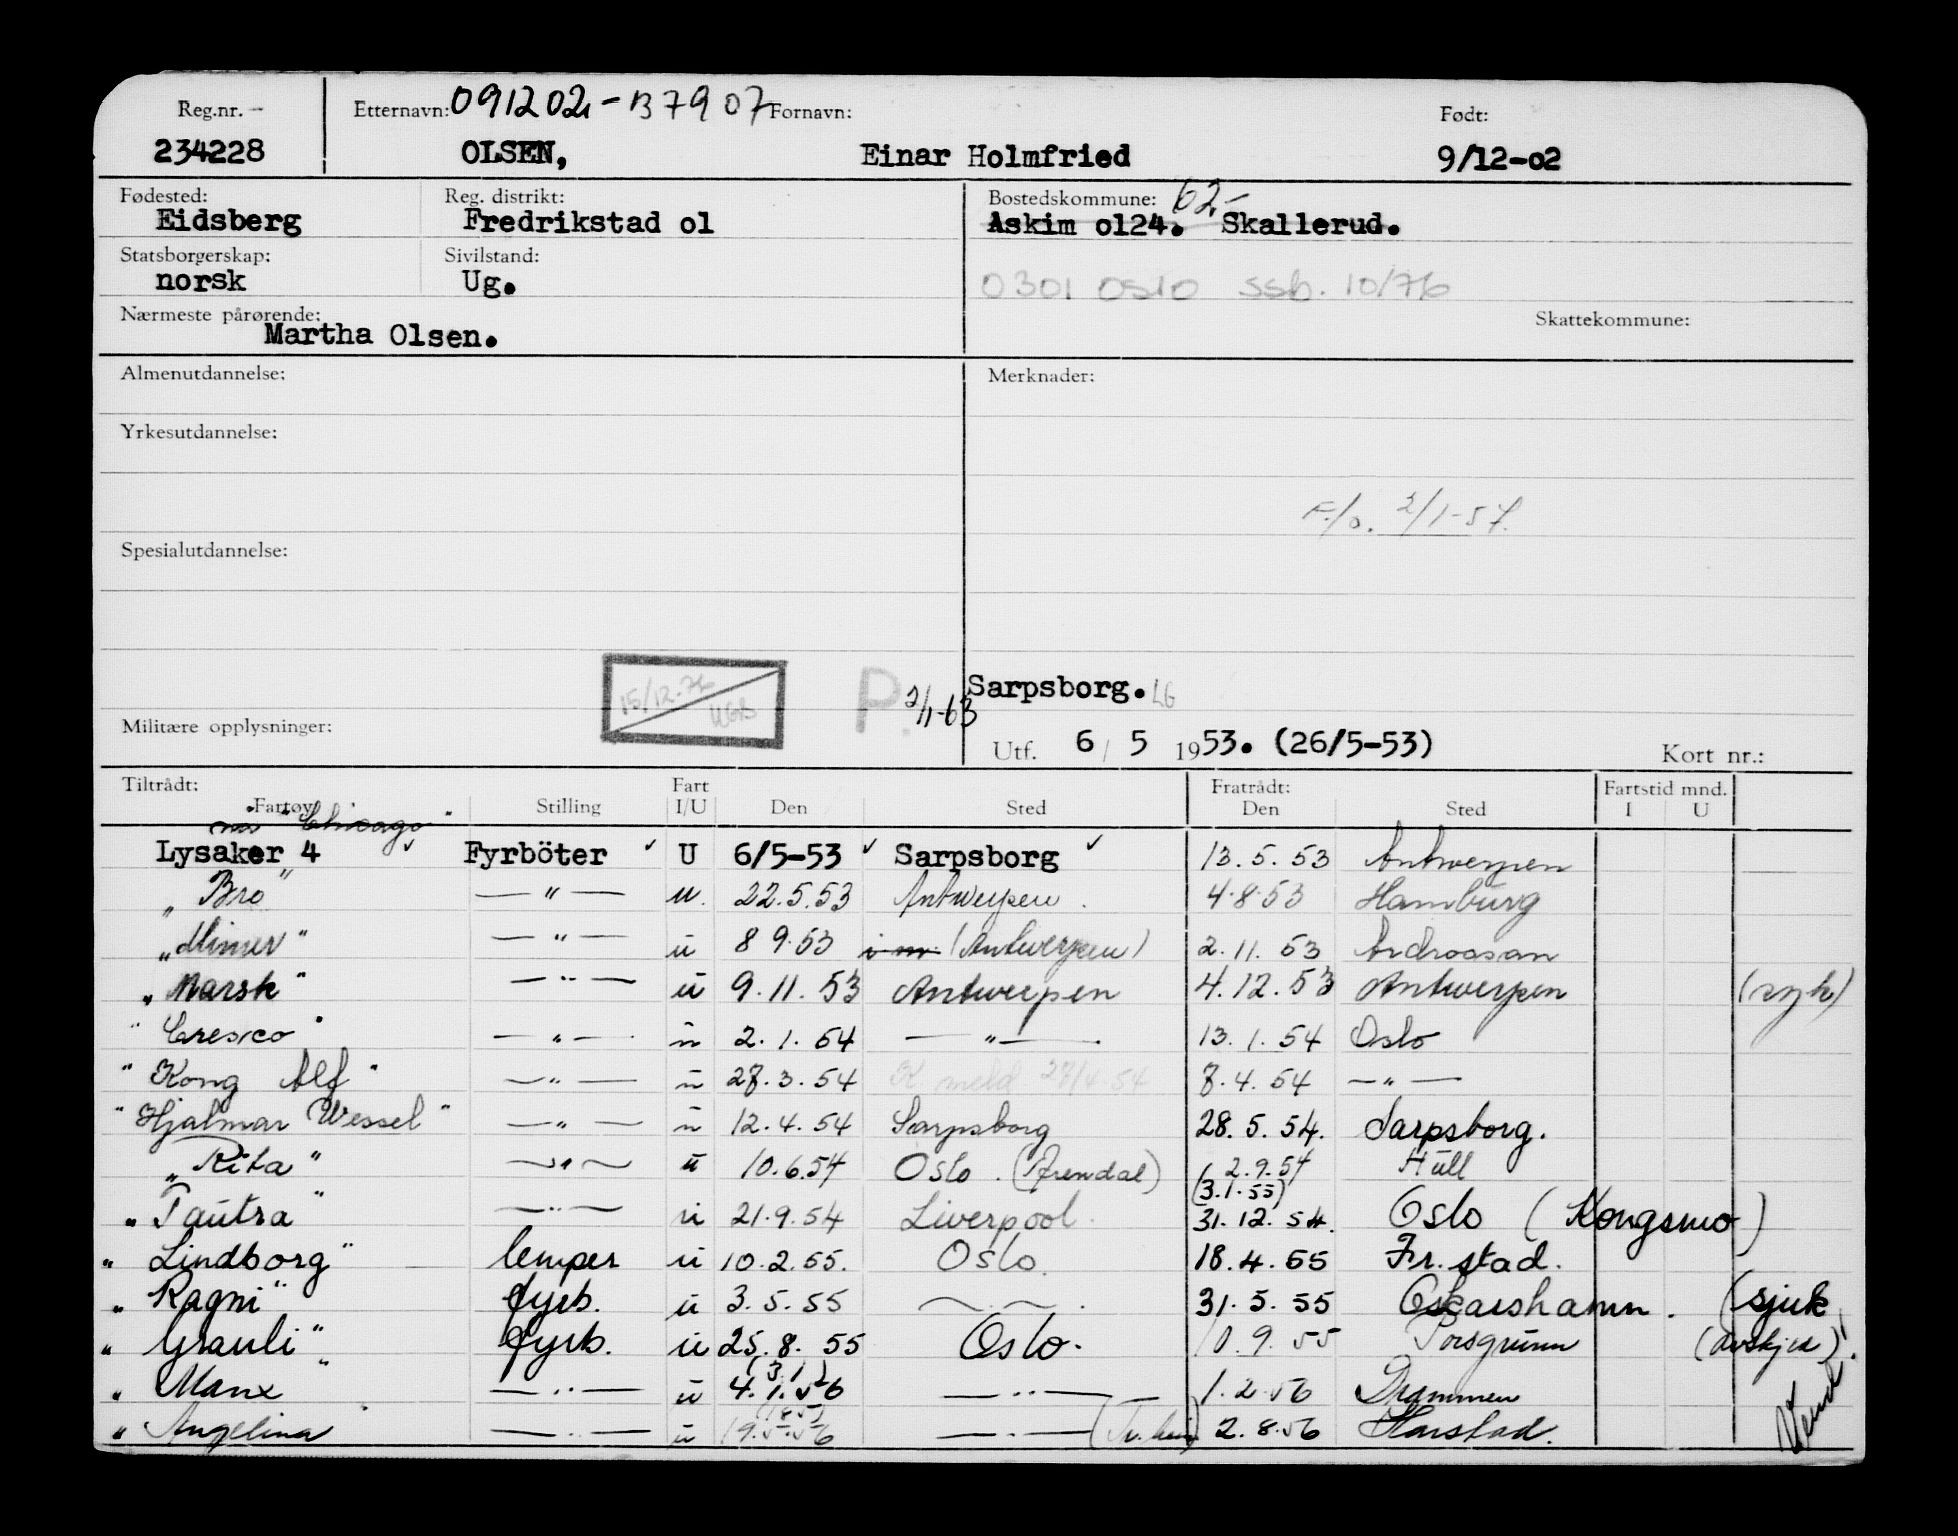 Reg.nr. — Etternavn: 091202-B7907 Fornavn: Født:
234228 OLSEN, Einar Holmfried 9/12-02
Fødested: Reg. distrikt: Bostedskommune: 62,-
Eidsberg Fredrikstad 01 Askim 0124. Skallerud.
Statsborgerskap: Sivilstand:
norsk Ug. 0301 Oslo SSb. 10/76
Nærmeste pårørende: Skattekommune:
Martha Olsen.
Almenutdannelse: Merknader:
Yrkesutdannelse:
F./o. 2/1-57.
Spesialutdannelse:
15/12-76 P. 2/1-63 Sarpsborg. LG
Militære opplysninger:
Utf. 6 / 5 1953. (26/5-53) Kort nr.:
Tiltrådt: Fart Fratrådt: Fartstid mnd.
Fartøy Stilling I/U Den Sted Den Sted I U
"Chicago"
Lysaker 4 Fyrböter U 6/5-53 Sarpsborg 13.5.53 Antwerpen
"Bro" — " — u. 22.5.53 Antwerpen. 4.8.53 Hamburg
"Mimer" — " — u 8 9.53 (Antwerpen) 2.11.53 Ardrossan
"Marsk" — " — u 9.11.53 Antwerpen 4.12.53 Antwerpen (syk)
"Cresco" — " — u 2.1.54 — " — 13.1.54 Oslo
"Kong Alf" — " — u 27.3.54 K. meld 28/4-54 8.4.54 — " —
"Hjalmar Wessel" — " — u 12.4.54 Sarpsborg 28.5.54. Sarpsborg.
"Rita" — " — u 10.6.54 Oslo. (Arendal) 2.9.54 Hull
"Tautra" — " — u 21.9.54 Liverpool. (3.1.55) 31.12.54. Oslo (Kongsmo)
"Lindborg" lemper u 10.2.55. Oslo. 18.4.55 Fr.stad.
"Ragni" fyrb. u 3.5.55 — " — . 31.5.55 Oskarshamn. (sjuk
"Grauli" fyrb. u 25.8.55 Oslo. 10.9.55 Porsgrunn (avskjed).
"Manx" — " — u 4.1.56 (3.1) — " — 1.2.56 Drammen
"Angelina" — " — u 19.5.56 (18.5) — " — 2.8.56 Harstad. Vend